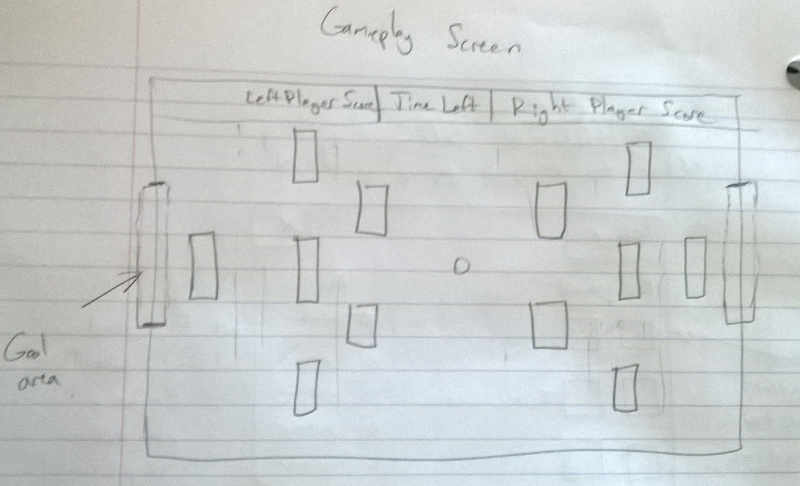 Gameplay Screen
Left Player Score Time Left Right Player Score
Goal
area